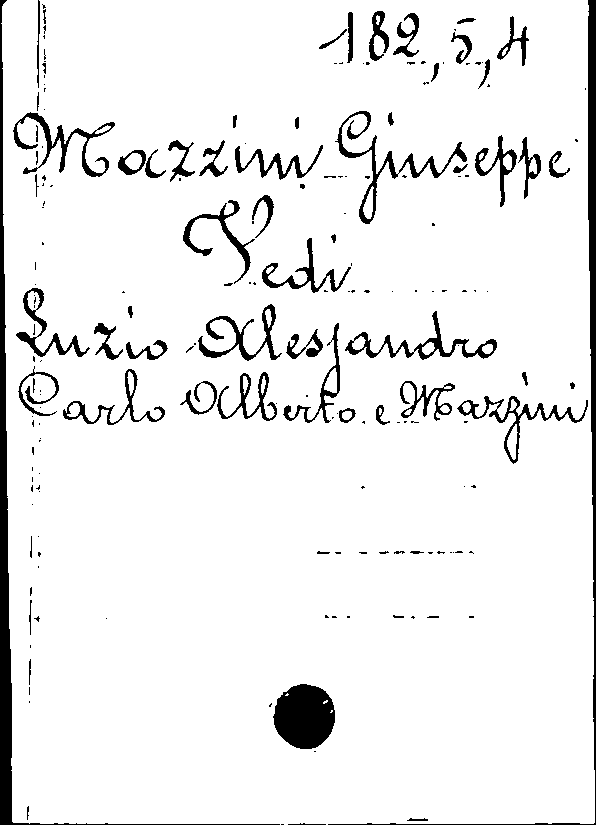 182,5,4
Mazzini Giuseppe
Vedi
Luzio Alessandro
Carlo Alberto e Mazzini